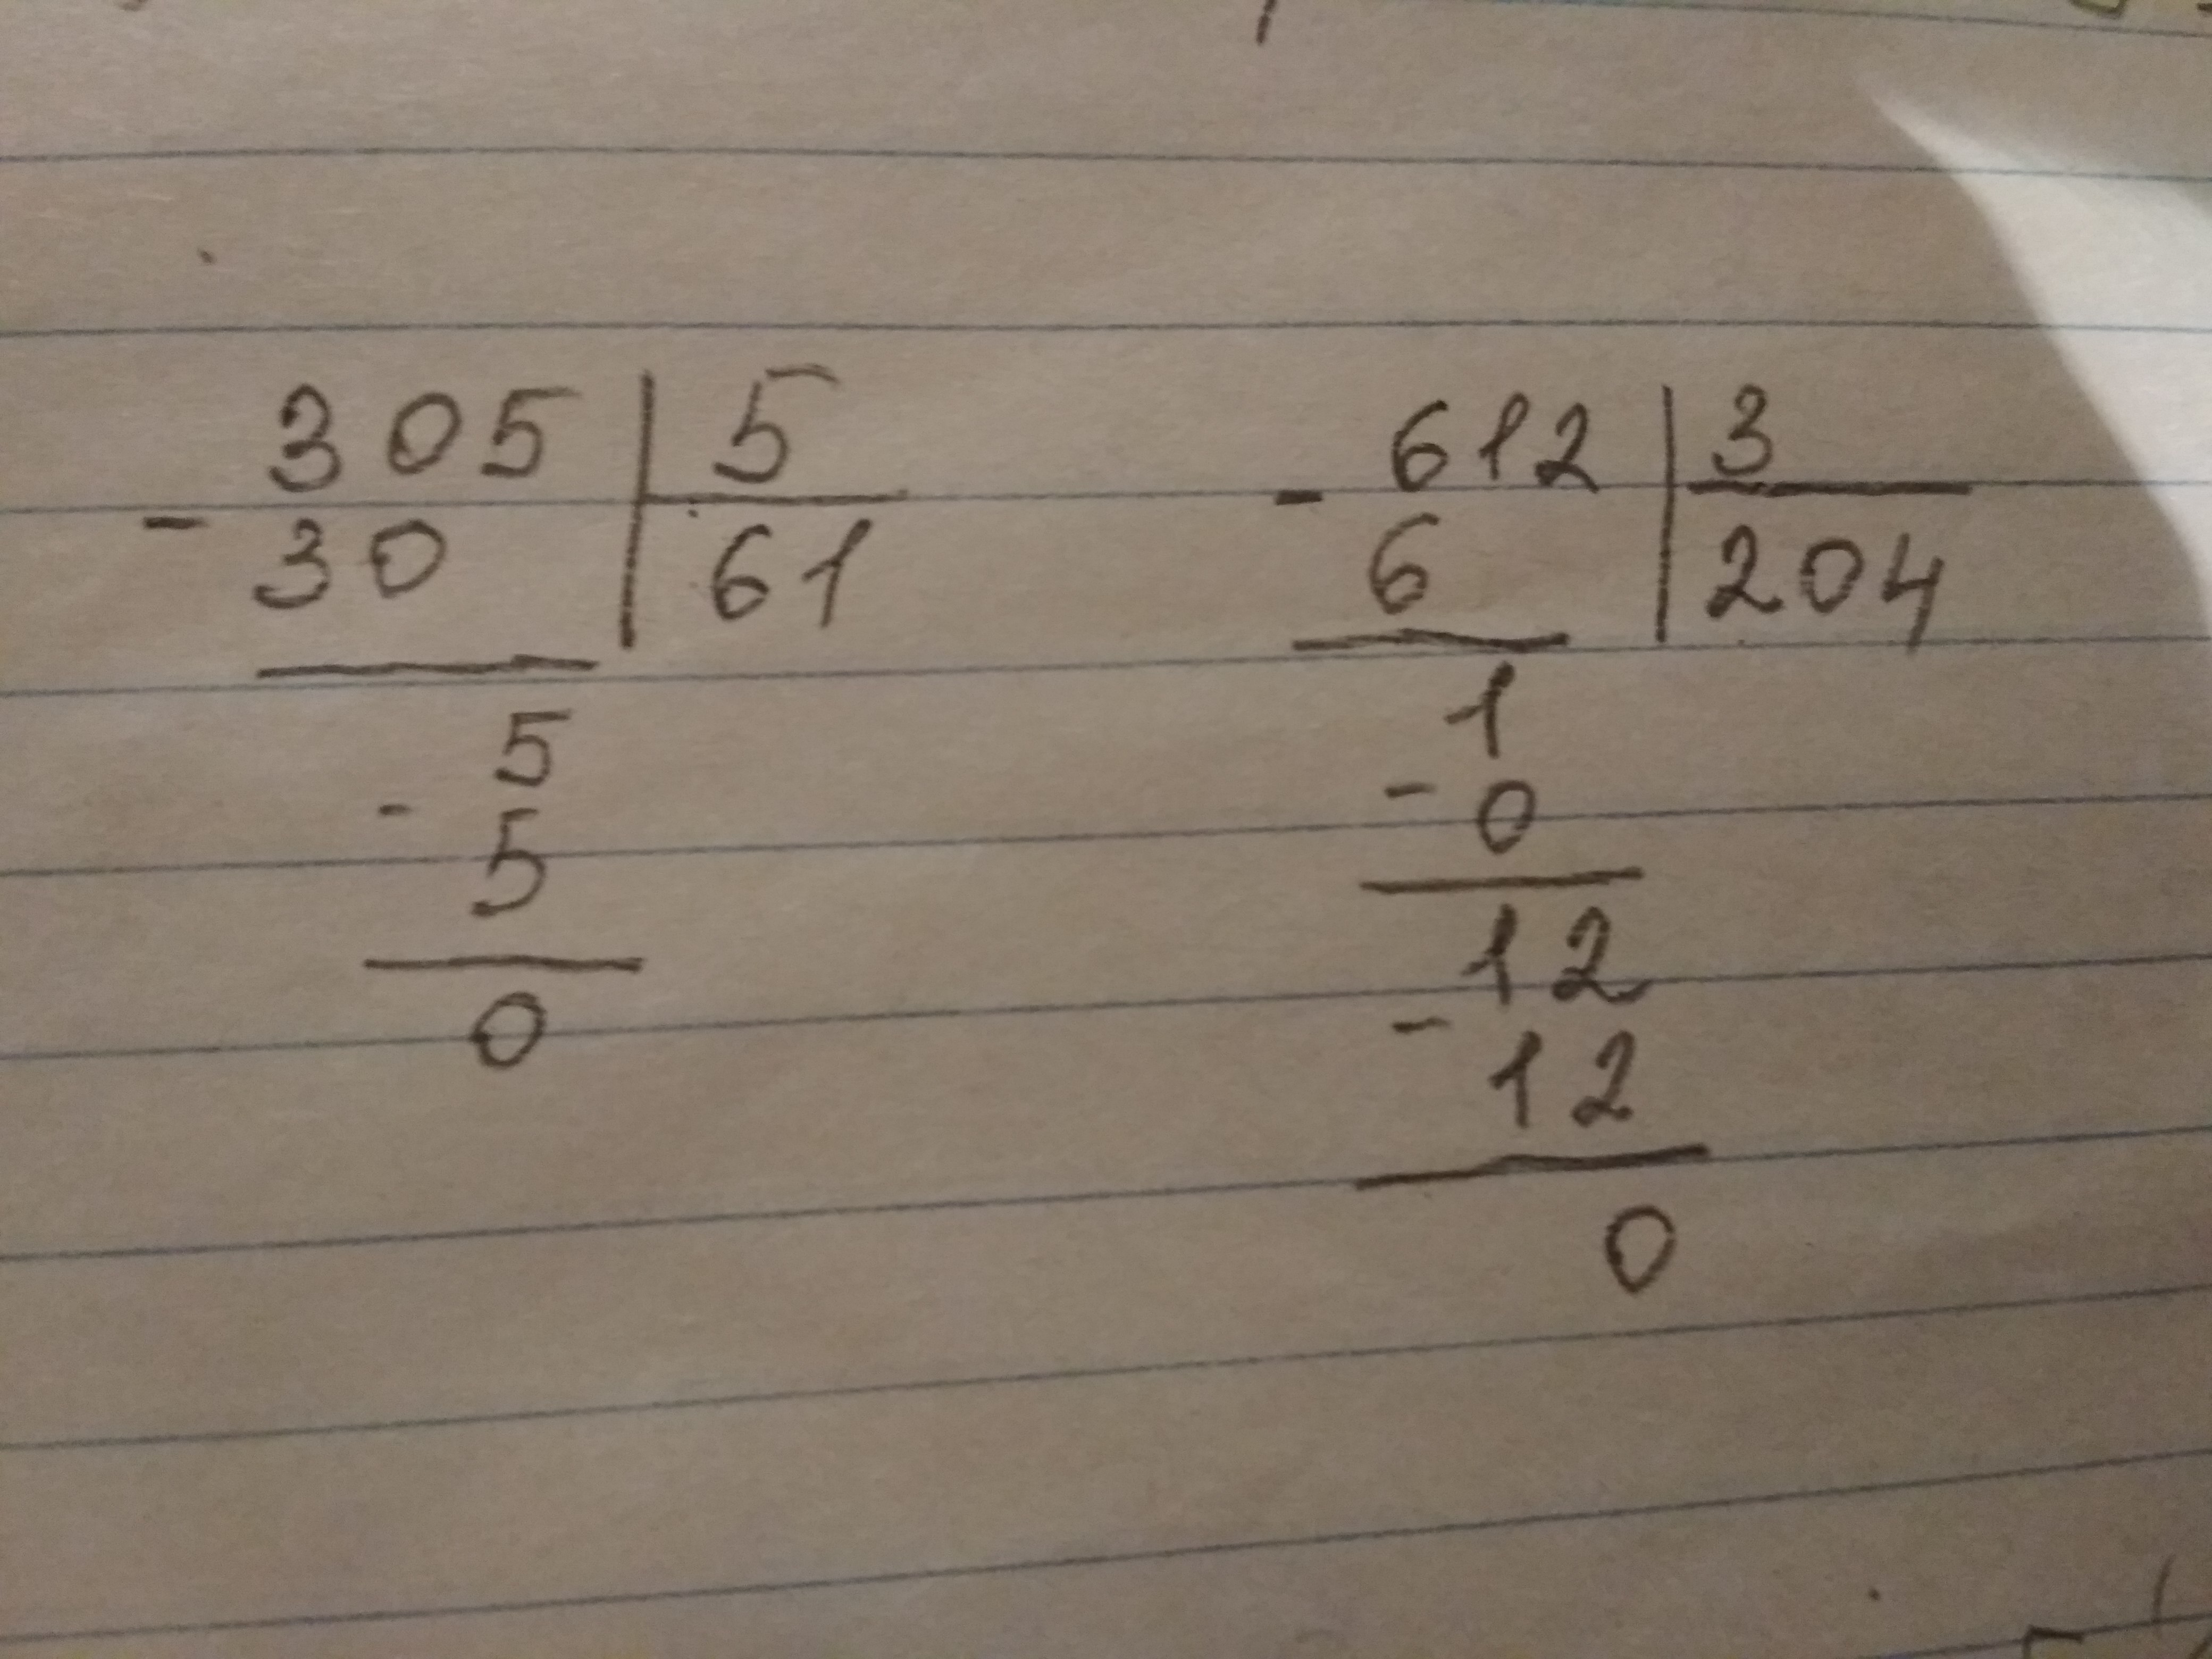 305 | 5
- 30 | 61
5
- 5
0
612 | 3
- 6 | 204
1
- 0
12
- 12
0